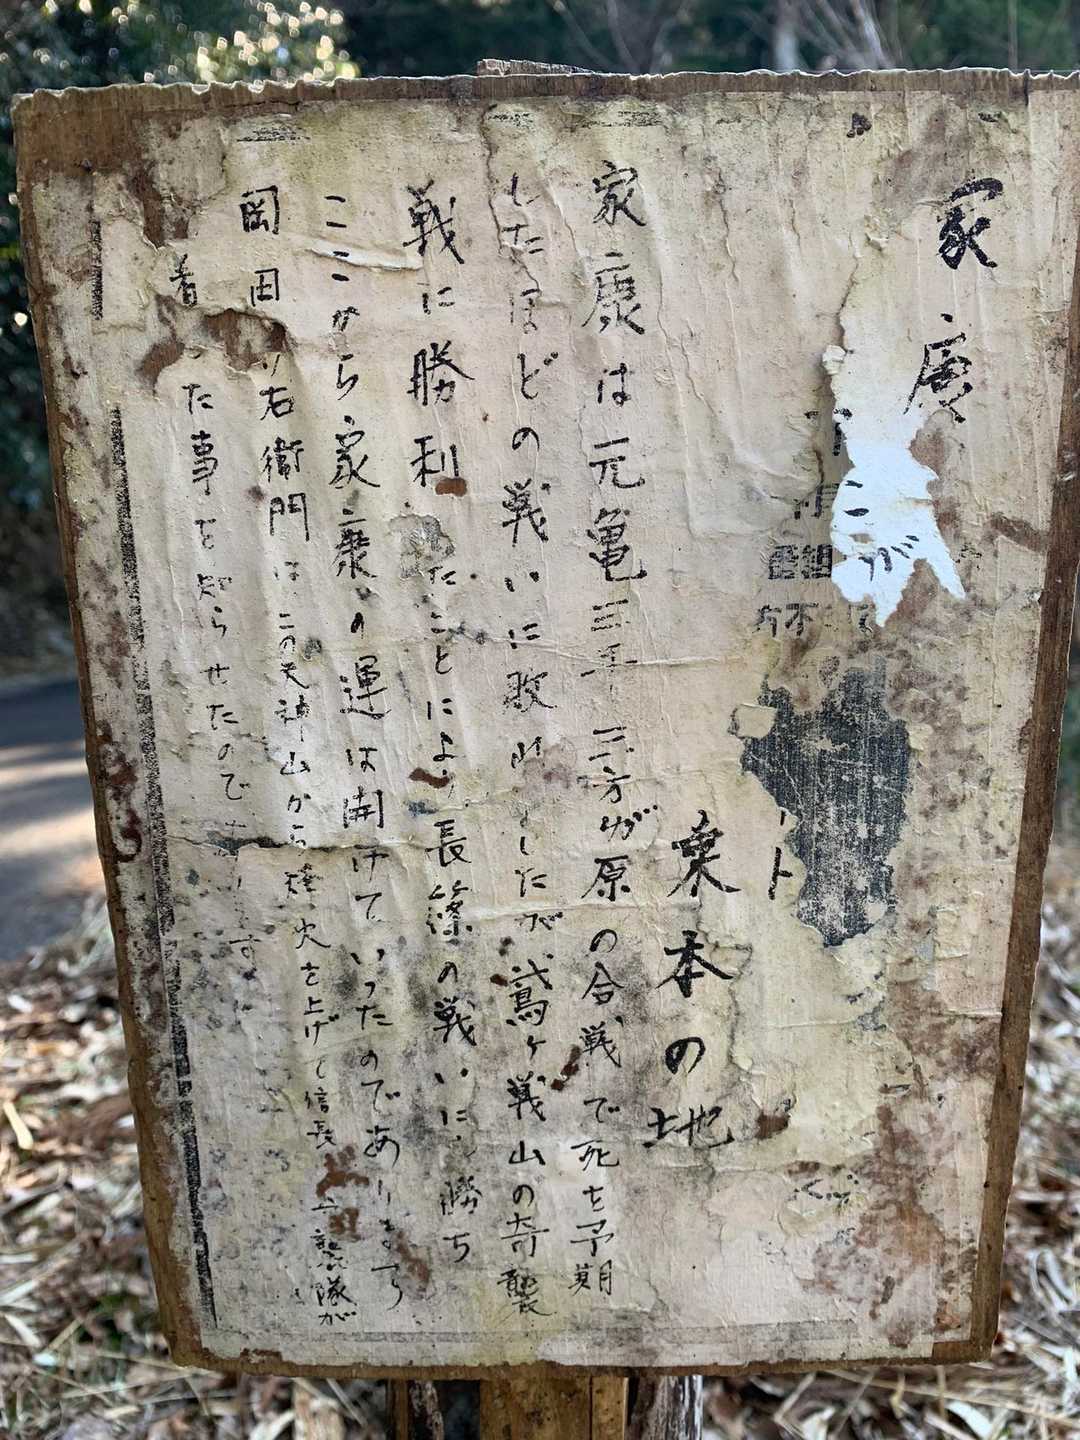 家康
こが
番組
方不
ト
東本の地
家康は元亀三年三方が原の合戦で死を予期
したほどの戦いに敗しだが鳶ヶ戦山の奇襲
戦に勝利たことにより長篠の戦いに勝ち
ここから家康の運は開けていったのであります
岡田右衛門はこの天神山から火を上げて信長襲隊が
着った事を知らせたのです